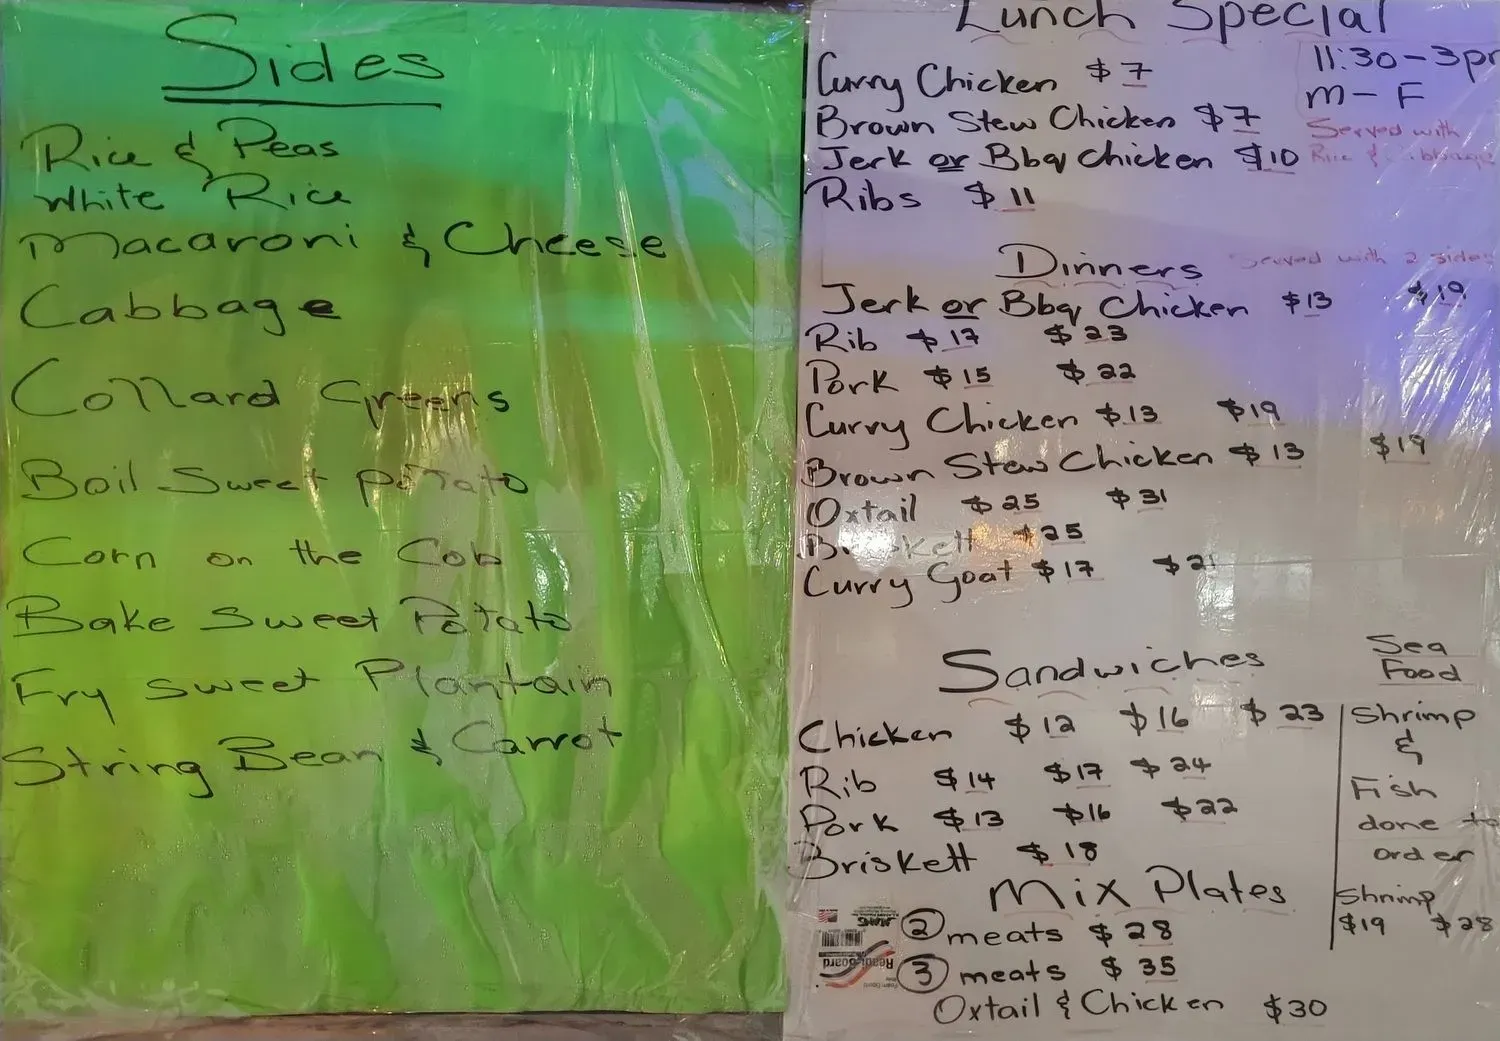 Sides
Rice & Peas
White Rice
Macaroni & Cheese
Cabbage
Collard Greens
Boil Sweet Potato
Corn on the Cob
Bake Sweet Potato
Fry Sweet Plantain
String Bean & Carrot
Lunch Special
11:30-3p
M-F
Served with
Rice &
Curry Chicken $7
Brown Stew Chicken $7
Jerk or Bbq Chicken $10
Ribs $11
Dinners Served with 2 sides
Jerk or Bbq Chicken $13 $19
Rib $17 $23
Pork $15 $22
Curry Chicken $13 $19
Brown Stew Chicken $13 $19
Oxtail $25 $31
Briskett $25
Curry Goat $17
Sandwiches
Chicken $12 $16 $23
Rib $14 $17 $24
Pork $13 $16 $22
Briskett $18
Sea
Food
Shrimp
&
Fish
done to
order
Shrimp
$19 $28
Mix Plates
2 meats $28
3 meats $35
Oxtail & Chicken $30
Readi-Board